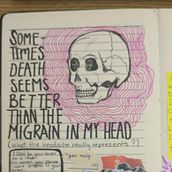 SOME-
TIMES
DEATH
SEEMS
BETTER
THAN THE
MIGRAIN IN MY HEAD
(what the headache really represents?)